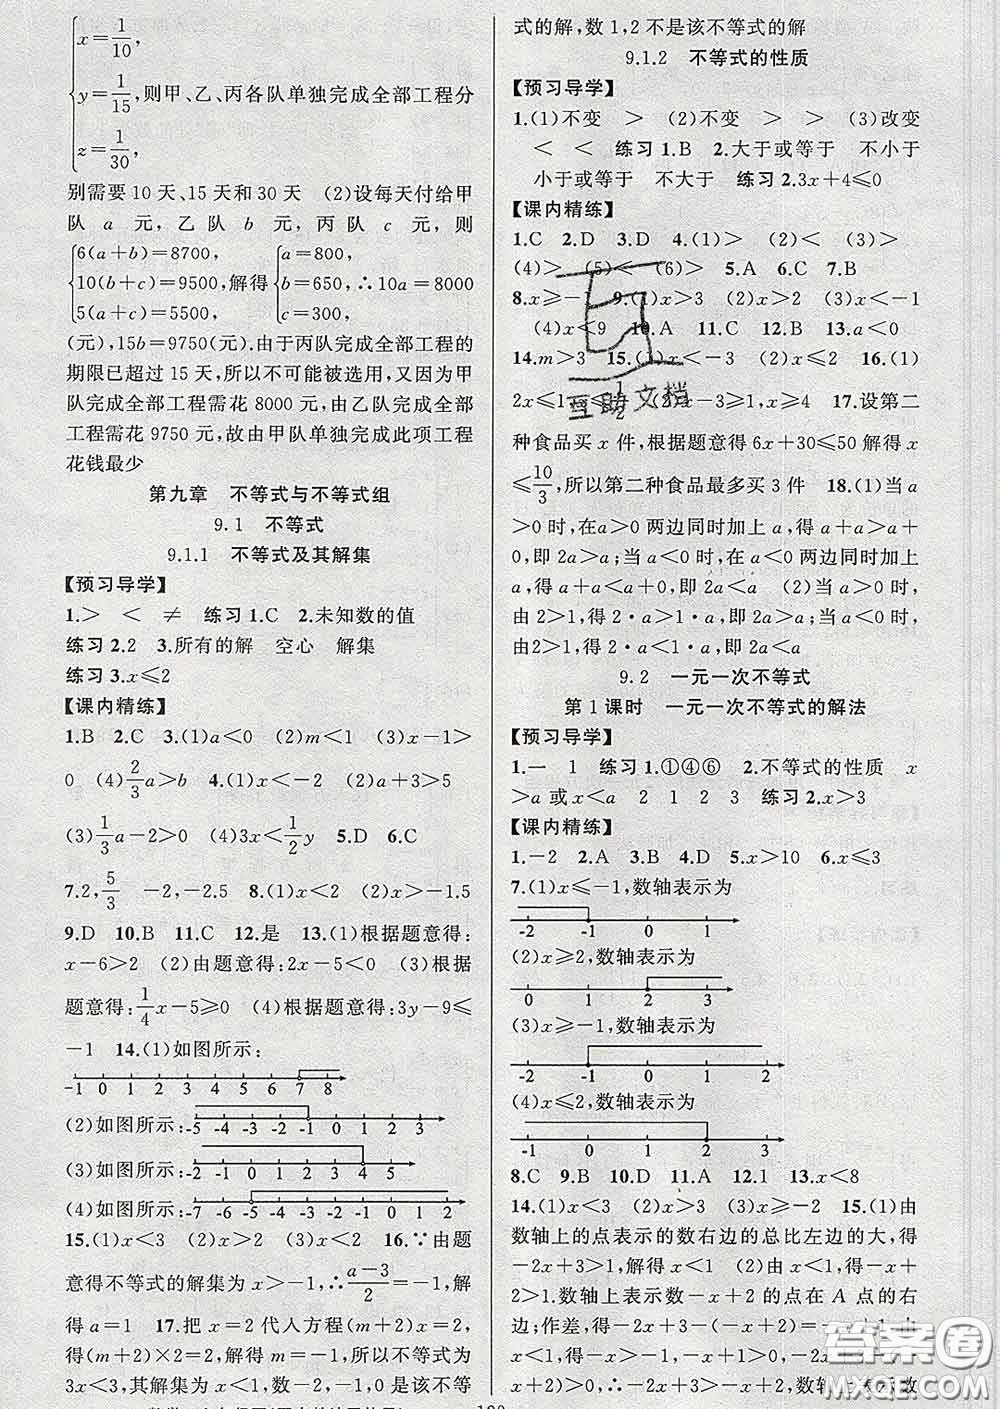 x=1/10,
y=1/15,则甲、乙、丙各队单独完成全部工程分
z=1/30,
别需要 10 天、15 天和 30 天 (2)设每天付给甲
队 a 元,乙队 b 元,丙队 c 元,则
6(a+b)=8700, a=800,
10(b+c)=9500,解得 b=650,∴10a=8000
5(a+c)=5500, c=300,
(元),15b=9750(元).由于丙队完成全部工程的
期限已超过 15 天,所以不可能被选用,又因为甲
队完成全部工程需花 8000 元,由乙队完成全部
工程需花 9750 元,故由甲队单独完成此项工程
花钱最少
第九章 不等式与不等式组
9.1 不等式
9.1.1 不等式及其解集
【预习导学】
1.> < ≠ 练习 1.C 2.未知数的值
练习 2.2 3.所有的解 空心 解集
练习 3.x≤2
【课内精练】
1.B 2.C 3.(1)a<0 (2)m<1 (3)-1>
0 (4)2/3a>b 4.(1)x<-2 (2)a+3>5
(3)1/3a-2>0 (4)3x<1/2y 5.D 6.C
7.2,5/3 -2,-2.5 8.(1)x<2 (2)x>-1.5
9.D 10.B 11.C 12.是 13.(1)根据题意得:
x-6>2 (2)由题意得:2x-5<0 (3)根据
题意得:1/4x-5≥0 (4)根据题意得:3y-9≤
-1 14.(1)如图所示:
-1 0 1 2 3 4 5 6 7 8
(2)如图所示: -5 -4 -3 -2 -1 0 1 2 3
(3)如图所示: -2 -1 0 1 2 3 4 5
(4)如图所示: -7 -6 -5 -4 -3 -2 -1 0 1 2
15.(1)x<3 (2)x>2 (3)x<2 16.∵由题
意得不等式的解集为 x>-1,∴(a-3)/2=-1,解
得 a=1 17.把 x=2 代人方程(m+2)x=2,
得(m+2)×2=2,解得 m=-1,所以不等式为
3x<3,其解集为 x<1,数-2,-1,0是该不等
式的解,数1,2不是该不等式的解
9.1.2 不等式的性质
【预习导学】
1.(1)不变 > (2)不变 > > (3)改变
< < 练习 1.B 2.大于或等于 不小于
小于或等于 不大于 练习 2.3x+4≤0
【课内精练】
1.C 2.D 3.D 4.(1)> (2)< (3)>
(4)> (5)< (6)> 5.A 6.C 7.B
8.x≥- 9.(1)x>3 (2)x>2 (3)x<-1
(4)x<9 10.A 11.C 12.B 13.a<0
14.m>3 15.(1)x<-3 (2)x≤2 16.(1)
2x≤1,x≤1/2 (2)x-3≥1,x≥4 17.设第二
种食品买 x 件,根据题意得 6x+30≤50 解得 x
≤10/3,所以第二种食品最多买 3 件 18.(1)当 a
>0时,在a>0两边同时加上 a,得 a+a>a+
0,即 2a>a;当 a<0 时,在 a<0 两边同时加上
a,得 a+a<a+0,即 2a<a (2)当 a>0 时,
由 2>1,得 2·a>1·a,即 2a>a;当 a<0 时,
由2>1,得 2·a<1·a,即 2a<a
9.2 一元一次不等式
第 1 课时 一元一次不等式的解法
【预习导学】
1.一 1 练习 1.①④⑥ 2.不等式的性质 x
>a 或 x<a 2 1 2 3 练习 2.x>3
【课内精练】
1.-2 2.A 3.B 4.D 5.x>10 6.x≤3
7.(1)x≤-1,数轴表示为
-2 -1 0 1
(2)x≥2,数轴表示为
0 1 2 3
(3)x≥-1,数轴表示为
-2 -1 0 1 2
(4)x≤2,数轴表示为
-1 0 1 2 3
8.C 9.B 10.D 11.A 12.1 13.x<8
14.(1)x<3 (2)x>3 (3)x>2 15.(1)由
数轴上的点表示的数右边的总比左边的大,得
-2x+3>1,解得 x<1 (2)由 x<1,得-x>
-1.-x+2>-1+2,解得-x+2
>1.数轴上表示数-x+2 的点在 A 点的右
边;作差,得-2x+3-(-x+2)=
互助文档
答案圈